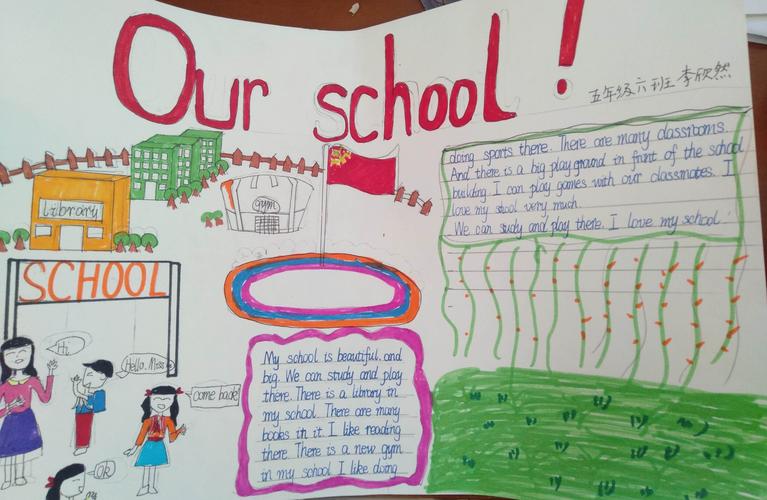 Our school!
五年级六班 李欣然
Library
gym
SCHOOL
Hi
Hello, Miss
come back!
Ok
My school is beautiful and
big. We can study and play
there. There is a library in
my school. There are many
books in it. I like reading
there. There is a new gym
in my school I like doing
doing sports there. There are many classrooms.
And there is a big playground in front of the school
building. I can play games with our classmates. I
love my stool very much.
We can study and play there. I love my school!